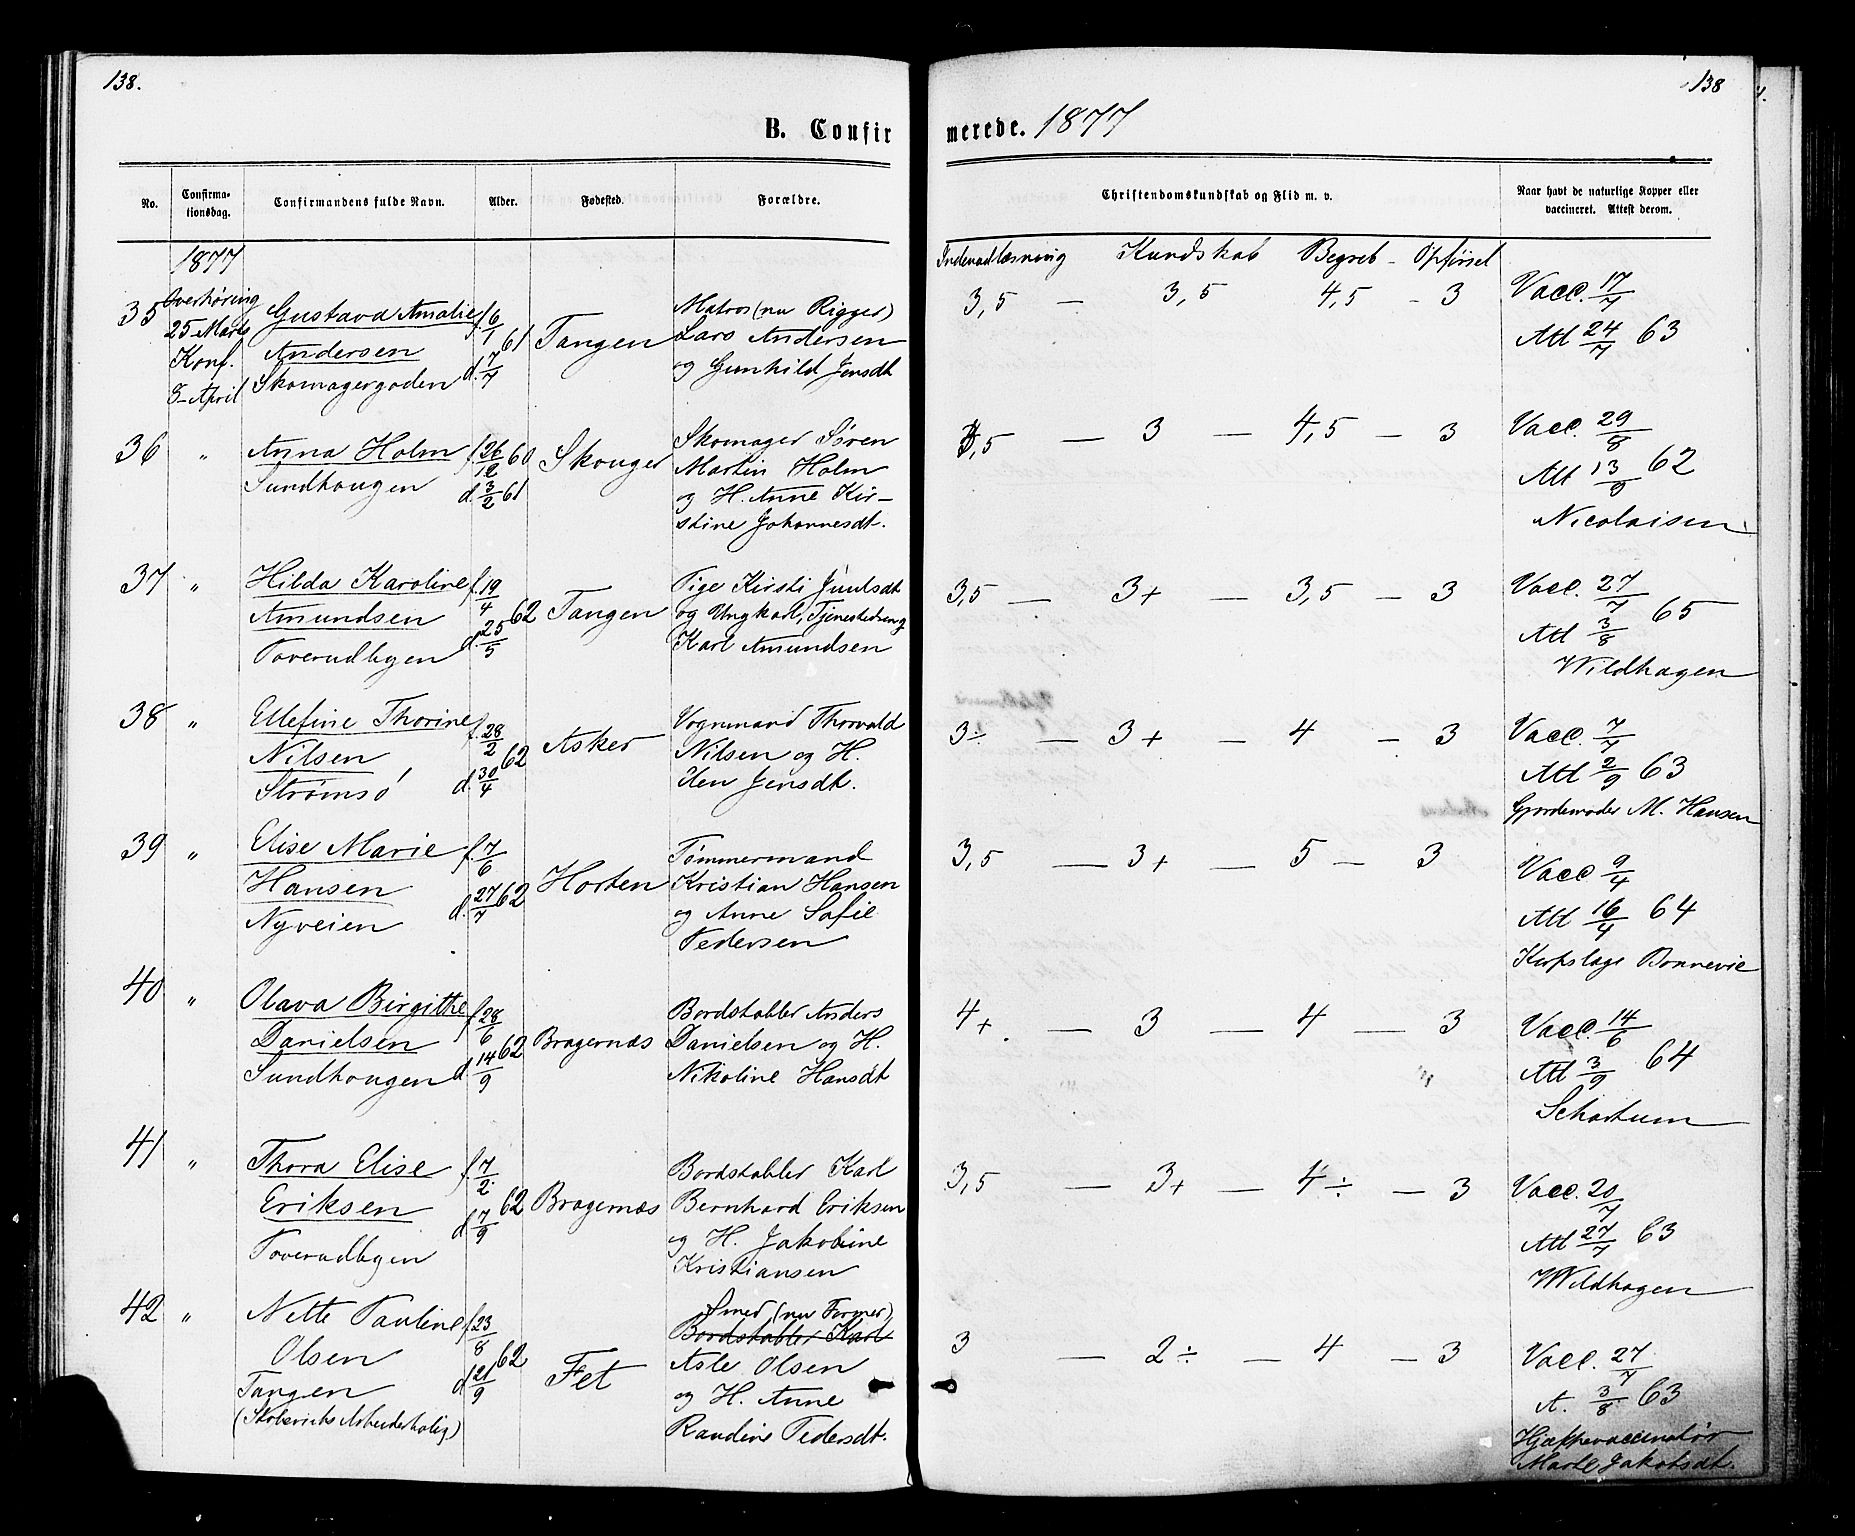 138.
138
B. Confirmerede. 1877
No.
Confirmationsdag.
Confirmandens fulde Navn.
Alder.
Fødested.
Forældre.
Christendomskundskab og Flid m. v.
Naar havt de naturlige Kopper eller
vaccineret. Attest derom.
1877
Indenadlæsning Kundskab Begreb Opførsel
35
Overhøring
25 Marts
Konf.
3 April
Gustava Amalie
Andersen
Skomagergaden
f. 6/1 61
d. 7/7
Tangen
Matros (nu Rigger)
Lars Andersen
og Gunhild Jensdt
3,5 — 3,5 4,5 - 3
Vacc. 17/7
Att 24/7 63
36 "
Anna Holm
Sundhougen
f. 26/12 60
d. 3/2 61
Skouger
Skomager Søren
Martin Holm
og H. Anne Kir-
stine Johannesdt.
3,5 — 3 — 4,5 — 3
Vacc. 29/8
Att 13/9 62
Nicolaisen
37 "
Hilda Karoline
Amundsen
Toverudbyen
f. 19/4 62
d. 25/5
Tangen
Pige Kirsti Juulsdt
og Ungkarl, Tjenestedreng
Karl Amundsen
3,5 — 3+ — 3,5 — 3
Vacc. 27/7
Att 3/8 65
Wildhagen
38 "
Ellefine Thorine
Nilsen
Strømsö
f. 28/2 62
d. 30/4
Asker
Vognmand Thorvald
Nilsen og H.
Jensdt.
3÷ — 3+ — 4 — 3
Vacc. 7/7
Att 2/9 63
Gjordemoder M. Hansen
39 "
Elise Marie
Hansen
Nyveien
f. 7/6
d. 27/7 62
Horten
Tømmermand
Kristian Hansen
og Anne Sofie
Pedersen
3,5 — 3+ — 5 — 3
Vacc 9/4
Att 16/4 64
Korpslæge Bonnevie
40 "
Olava Birgithe
Danielsen
Sundhougen
f. 28/6 62
d. 14/9
Bragernæs
Bordstabler Anders
Danielsen og H.
Nikoline Hansdt
4+ — 3 — 4 — 3
Vacc. 14/6
Att 3/9 64
Schartum
41 "
Thora Elise
Eriksen
Toverudbyen
f. 7/2 62
d. 7/9
Bragernæs
Bordstabler Karl
Bernhard Eriksen
og H. Jakobine
Kristiansen
3,5 — 3+ — 4÷ — 3
Vacc. 20/7
Att 27/7 63
Wildhagen
42 "
Nette Pauline
Olsen
Tangen
f. 23/8 62
d. 21/9
Fet
Smed (nu Former)
Bordstabler Karl
Asle Olsen
og H. Anne
Randine Pedersdt.
3 — 2÷ — 4 — 3
Vacc. 27/7
A. 3/8 63
Hjælpevaccinatør
Marte Jakobsdt.